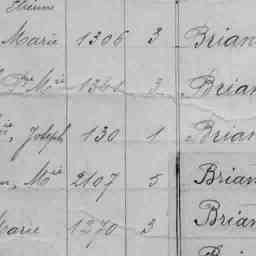 Etienne
Marie 1306 3 Brian
Mie 3 Brian
Joseph 130 1 Brian
Mie 2107 5 Brian
Marie 1270 3 Brian